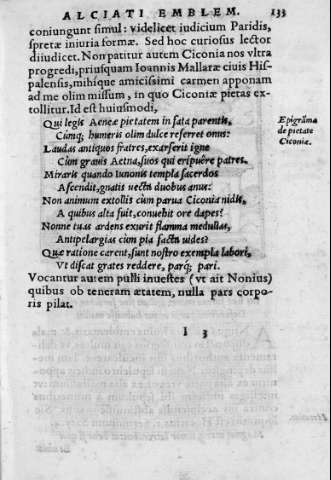 ALCIATI EMBLEM. 133
coniungunt simul: videlicet iudicium Paridis,
spretæ iniuria formæ. Sed hoc curiosus lector
diiudicet. Non patitur autem Ciconia nos vltra
progredi, priusquam Ioannis Mallaræ ciuis Hispalensis,
mihique amicissimi carmen apponam
ad me olim missum, in quo Ciconiæ pietas extollitur.
Id est huiusmodi,
Qui legis Aeneæ pietatem in fata parentis,
Cumq; humeris olim dulce referret onus:
Epigrāma
de pietate
Ciconiæ.
Laudas antiquos fratres, exarserit igne
Cùm grauis Aetna, suos qui eripuêre patres.
Miraris quando Iunonis templa sacerdos
Ascendit, gnatis uecta duobus anus:
Non animum extollis cùm parua Ciconia nidis,
A quibus alta fuit, conuehit ore dapes?
Nonne tuas ardens exurit flamma medullas,
Antipelargias cùm pia facta uides?
Quæ ratione carent, sunt nostro exempla labori,
Vt discat grates reddere, parq; pari.
Vocantur autem pulli inuestes (vt ait Nonius)
quibus ob teneram ætatem, nulla pars corporis
pilat.
I 3